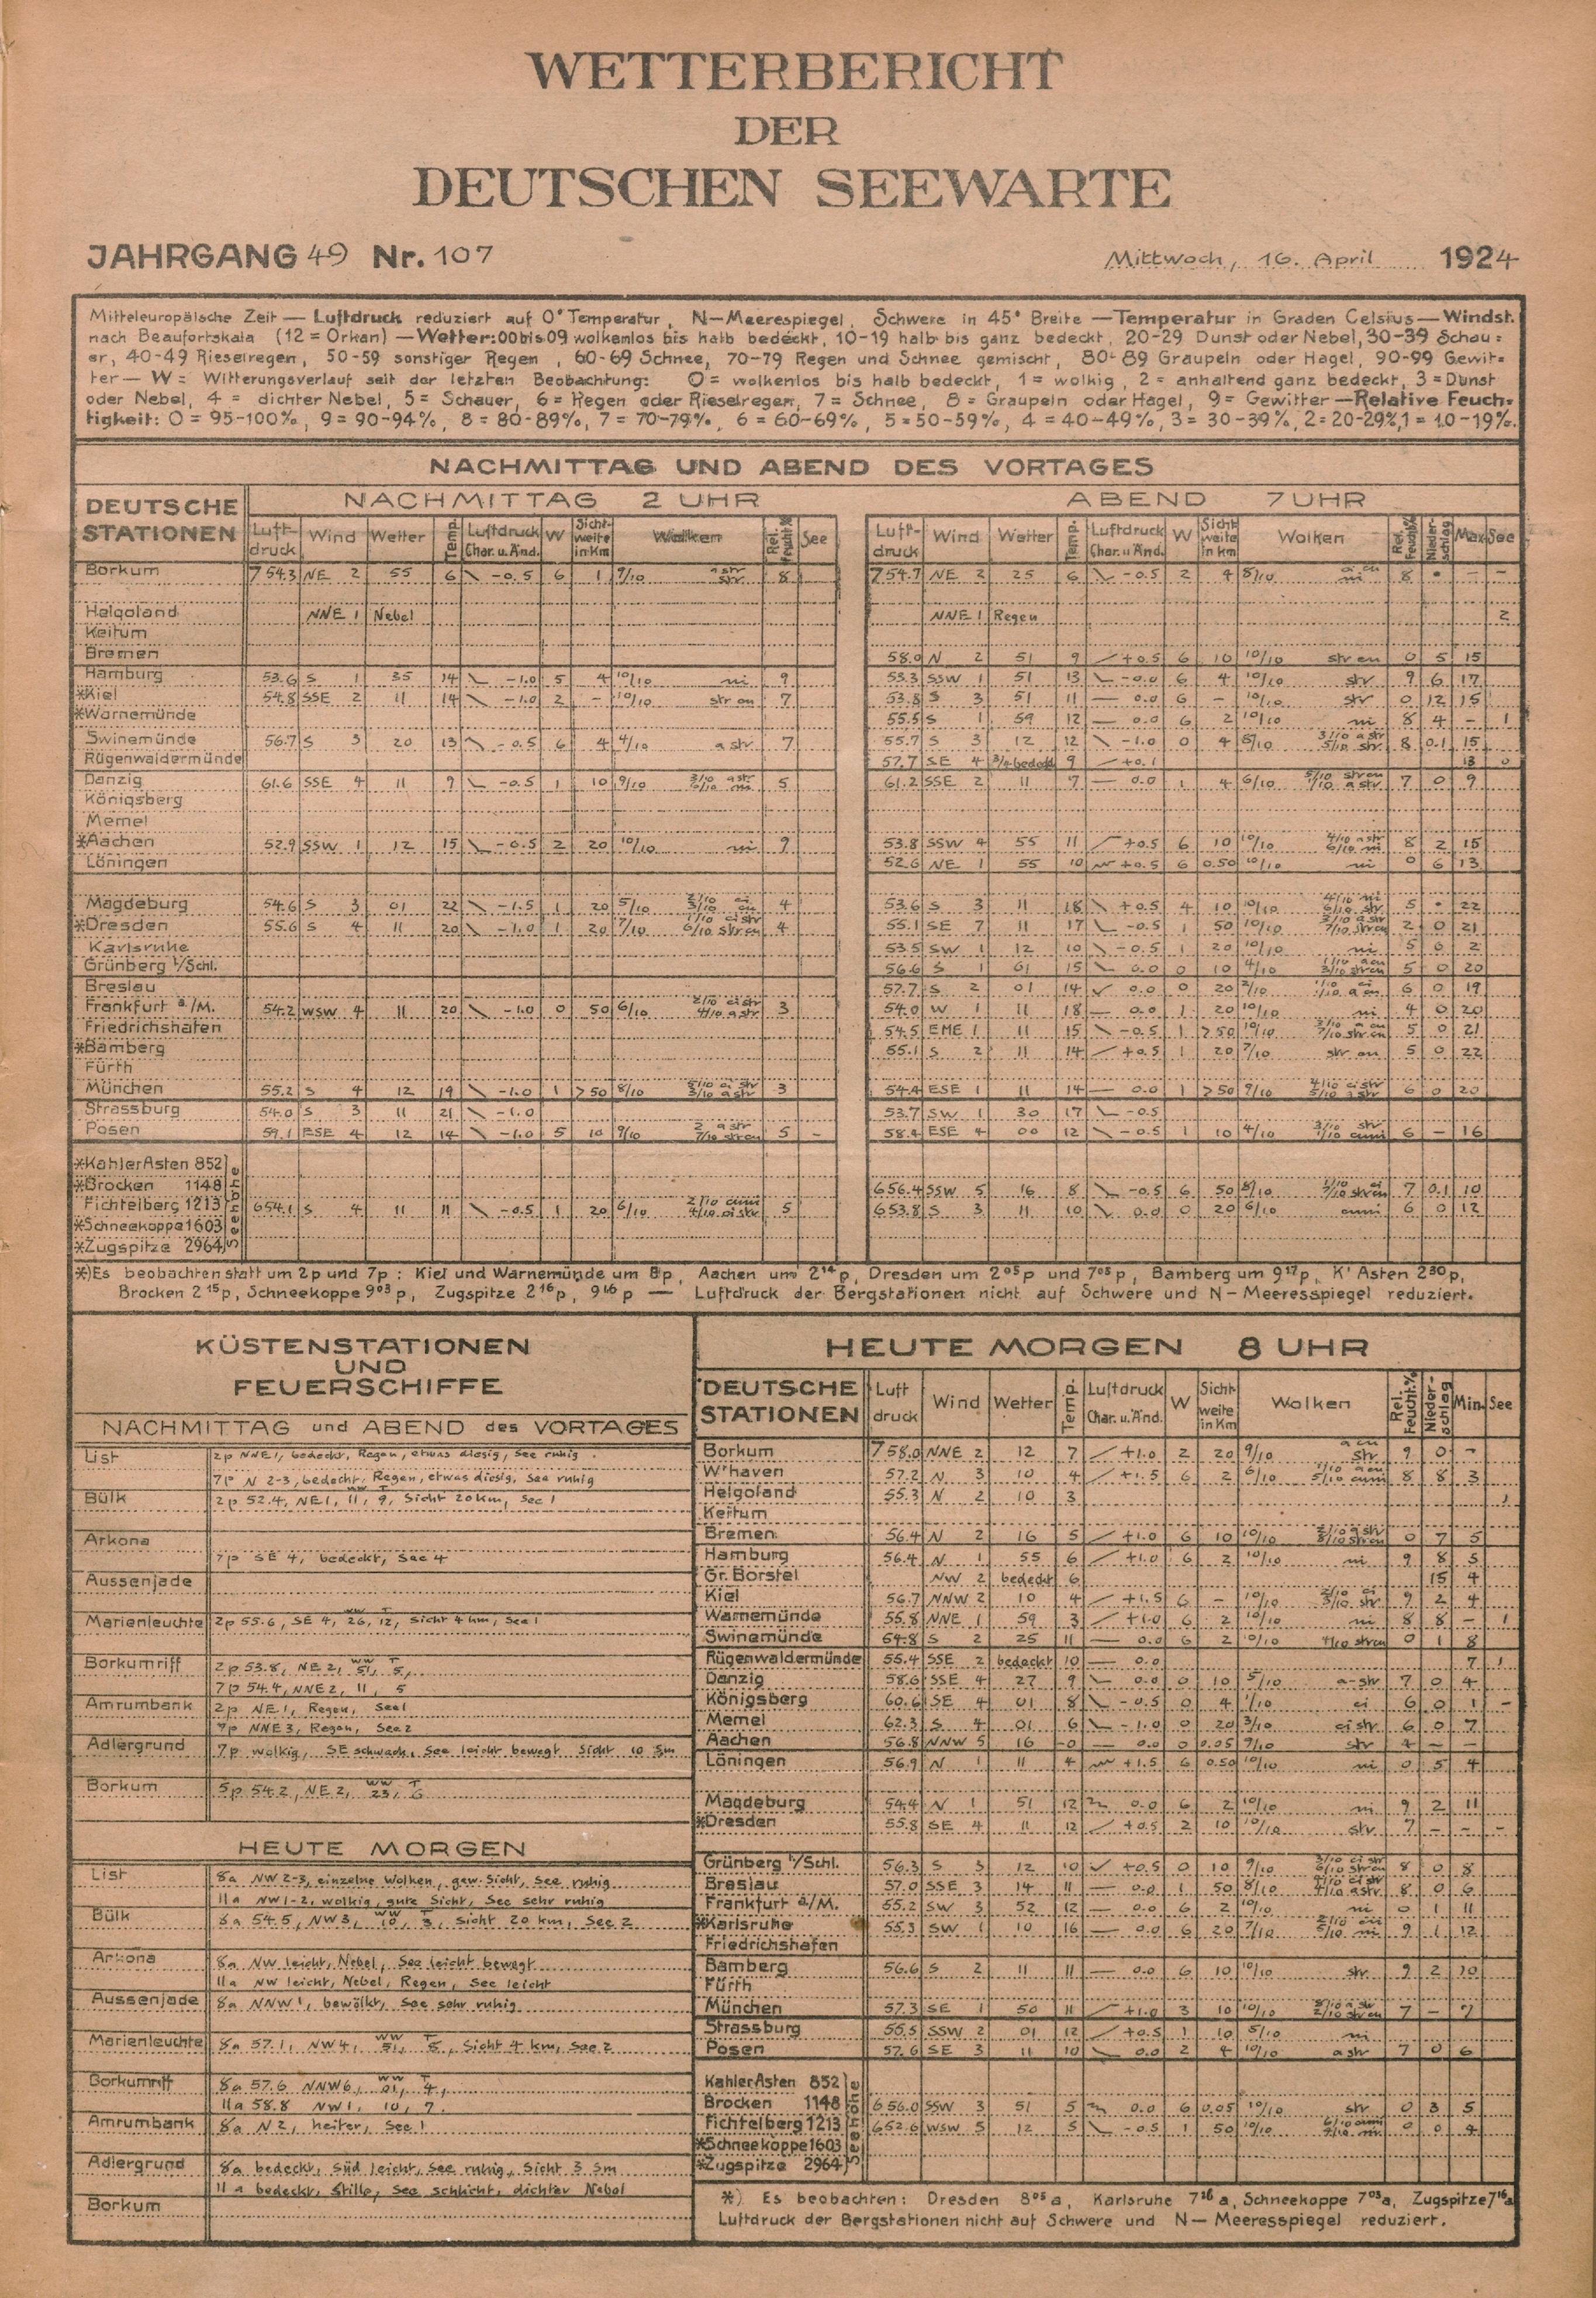 WETTERBERICHT
DER
DEUTSCHEN SEEWARTE
JAHRGANG 49 Nr. 107 Mittwoch, 16. April 1924
Mitteleuropäische Zeit — Luftdruck reduziert auf 0° Temperatur, N—Meerespiegel, Schwere in 45° Breite — Temperatur in Graden Celsius — Windst.
nach Beaufortskala (12 = Orkan) — Wetter: 00 bis 09 wolkenlos bis halb bedeckt, 10-19 halb bis ganz bedeckt, 20-29 Dunst oder Nebel, 30-39 Schau=
er, 40-49 Rieselregen, 50-59 sonstiger Regen, 60-69 Schnee, 70-79 Regen und Schnee gemischt, 80-89 Graupeln oder Hagel, 90-99 Gewit=
ter — W = Witterungsverlauf seit der letzten Beobachtung: 0 = wolkenlos bis halb bedeckt, 1 = wolkig, 2 = anhaltend ganz bedeckt, 3 = Dunst
oder Nebel, 4 = dichter Nebel, 5 = Schauer, 6 = Regen oder Rieselregen, 7 = Schnee, 8 = Graupeln oder Hagel, 9 = Gewitter — Relative Feuch=
tigkeit: 0 = 95-100%, 9 = 90-94%, 8 = 80-89%, 7 = 70-79%, 6 = 60-69%, 5 = 50-59%, 4 = 40-49%, 3 = 30-39%, 2 = 20-29%, 1 = 10-19%.
NACHMITTAG UND ABEND DES VORTAGES
DEUTSCHE STATIONEN
NACHMITTAG 2 UHR ABEND 7 UHR
Luft-druck Wind Wetter Temp. Luftdruck Char. u. Änd. W Sicht-weite in Km Wolken Rel. Feucht.% See
Luft-druck Wind Wetter Temp. Luftdruck Char. u. Änd. W Sicht weite in Km Wolken Rel. Feucht.% Nieder-schlag Max See
Borkum 754.3 NE 2 55 6 -0.5 6 1 9/10 a str str 8 754.7 NE 2 25 6 -0.5 2 4 8/10 a cu ni 8 • - -
Helgoland NNE 1 Nebel NNE 1 Regen 2
Keitum
Bremen 58.0 N 2 51 9 +0.5 6 10 10/10 str cu 0 5 15
Hamburg 53.6 S 1 35 14 -1.0 5 4 10/10 ni 9 53.3 SSW 1 51 13 -0.0 6 4 10/10 str 9 6 17
*Kiel 54.8 SSE 2 11 14 -1.0 2 - 10/10 str cu 7 53.8 S 3 51 11 0.0 6 - 10/10 str 0 12 15
*Warnemünde 55.5 S 1 59 12 0.0 6 2 10/10 ni 8 4 - 1
Swinemünde 56.7 S 3 20 13 -0.5 6 4 4/10 a str 7 55.7 S 3 12 12 -1.0 0 4 8/10 3/10 a str 5/10 str 8 0.1 15
Rügenwaldermünde 57.7 SE 4 3/4 bedeckt 9 +0.1 13 0
Danzig 61.6 SSE 4 11 9 -0.5 1 10 9/10 5 61.2 SSE 2 11 7 0.0 1 4 6/10 7 0 9
Königsberg
Memel
*Aachen 52.9 SSW 1 12 15 -0.5 2 20 10/10 ni 9 53.8 SSW 4 55 11 +0.5 6 10 10/10 4/10 a str 6/10 ni 8 2 15
Löningen 52.6 NE 1 55 10 +0.5 6 0.50 10/10 ni 0 6 13
Magdeburg 54.6 S 3 01 22 -1.5 1 20 5/10 4 53.6 S 3 11 18 +0.5 4 10 10/10 4/10 ni 6/10 str 5 • 22
*Dresden 55.6 S 4 11 20 -1.0 1 20 7/10 1/10 ci str 6/10 str cu 4 55.1 SE 7 11 17 -0.5 1 50 10/10 3/10 a str 7/10 str cu 2 0 21
Karlsruhe 53.5 SW 1 12 10 -0.5 1 20 10/10 ni 5 6 2
Grünberg i/Schl. 56.6 S 1 01 15 0.0 0 10 4/10 1/10 a cu 3/10 str cu 5 0 20
Breslau 57.7 S 2 01 14 0.0 0 20 2/10 6 0 19
Frankfurt a./M. 54.2 WSW 4 11 20 -1.0 0 50 6/10 2/10 ci str 4/10 a str 3 54.0 W 1 11 18 0.0 1 20 10/10 ni 4 0 20
Friedrichshafen 54.5 EME 1 11 15 -0.5 1 >50 10/10 3/10 a cu 7/10 str cu 5 0 21
*Bamberg 55.1 S 2 11 14 +0.5 1 20 7/10 str cu 5 0 22
Fürth
München 55.2 S 4 12 19 -1.0 1 >50 8/10 5/10 ci str 3/10 a str 3 54.4 ESE 1 11 14 0.0 1 >50 9/10 4/10 ci str 5/10 a str 6 0 20
Strassburg 54.0 S 3 11 21 -1.0 53.7 SW 1 30 17 -0.5
Posen 59.1 ESE 4 12 14 -1.0 5 10 9/10 2 a str 7/10 str cu 5 - 58.4 ESE 4 00 12 -0.5 1 10 4/10 3/10 str 1/10 cuni 6 - 16
*Kahler Asten 852
*Brocken 1148 656.4 SSW 5 16 8 -0.5 6 50 8/10 7 0.1 10
Fichtelberg 1213 654.1 S 4 11 11 -0.5 1 20 6/10 2/10 cuni 4/10 ci str 5 653.8 S 3 11 10 0.0 0 20 6/10 cuni 6 0 12
*Schneekoppe 1603
*Zugspitze 2964
Seehöhe
*) Es beobachten statt um 2p und 7p: Kiel und Warnemünde um 8p, Aachen um 2¹⁴p, Dresden um 2⁰⁵p und 7⁰⁵p, Bamberg um 9¹⁷p, K' Asten 2³⁰p,
Brocken 2¹⁵p, Schneekoppe 9⁰³p, Zugspitze 2¹⁶p, 9¹⁶p — Luftdruck der Bergstationen nicht auf Schwere und N—Meeresspiegel reduziert.
KÜSTENSTATIONEN
UND
FEUERSCHIFFE
NACHMITTAG und ABEND des VORTAGES
List 2p NNE1, bedeckt, Regen, etwas diesig, See ruhig
7p N 2-3, bedeckt, Regen, etwas diesig, See ruhig
Bülk 2p 52.4, NE1, ww 11, T 9, Sicht 20 km, See 1
Arkona
7p SE 4, bedeckt, See 4
Aussenjade
Marienleuchte 2p 55.6, SE 4, ww 26, T 12, Sicht 4 km, See 1
Borkumriff 2p 53.8, NE 2, ww 51, T 5,
7p 54.4, NNE2, 11, 5
Amrumbank 2p NE1, Regen, See1
7p NNE3, Regen, See2
Adlergrund 7p wolkig, SE schwach, See leicht bewegt Sicht 10 Sm
Borkum 5p 54.2, NE 2, ww 23, T 6
HEUTE MORGEN
List 8a NW 2-3, einzelne Wolken, gew. Sicht, See ruhig
11a NW 1-2, wolkig, gute Sicht, See sehr ruhig
Bülk 8a 54.5, NW3, ww 10, T 3, Sicht 20 km, See 2
Arkona 8a NW leicht, Nebel, See leicht bewegt
11a NW leicht, Nebel, Regen, See leicht
Aussenjade 8a NNW 1, bewölkt, See sehr ruhig
Marienleuchte 8a 57.1, NW4, ww 51, T 5, Sicht 4 km, See 2
Borkumriff 8a 57.6 NNW6, ww 01, T 4,
11a 58.8 NW1, 10, 7.
Amrumbank 8a N2, heiter, See 1
Adlergrund 8a bedeckt, Süd leicht, See ruhig, Sicht 3 Sm
11 a bedeckt, Stille, See schlicht, dichter Nebel
Borkum
HEUTE MORGEN 8 UHR
DEUTSCHE STATIONEN Luft druck Wind Wetter Temp. Luftdruck Char. u. Änd. W Sicht-weite in Km Wolken Rel. Feucht.% Nieder-schlag Min. See
Borkum 758.0 NNE 2 12 7 +1.0 2 20 9/10 a cu str 9 0 -
W'haven 57.2 N 3 10 4 +1.5 6 2 6/10 1/10 a cu 5/10 cuni 8 8 3
Helgoland 55.3 N 2 10 3 1
Keitum
Bremen 56.4 N 2 16 5 +1.0 6 10 10/10 2/10 a str 8/10 str cu 0 7 5
Hamburg 56.4 N 1 55 6 +1.0 6 2 10/10 ni 9 8 5
Gr. Borstel NW 2 bedeckt 6 15 4
Kiel 56.7 NNW 2 10 4 +1.5 6 - 10/10 9 2 4
Warnemünde 55.8 NNE 1 59 3 +1.0 6 2 10/10 ni 8 8 - 1
Swinemünde 54.8 S 2 25 11 0.0 6 2 10/10 4/10 str cu 0 1 8
Rügenwaldermünde 55.4 SSE 2 bedeckt 10 0.0 7 1
Danzig 58.6 SSE 4 27 9 0.0 0 10 5/10 a-str 7 0 4
Königsberg 60.6 SE 4 01 8 -0.5 0 4 1/10 ci 6 0 1 -
Memel 62.3 S 4 01 6 -1.0 0 20 3/10 ci str 6 0 7
Aachen 56.8 NNW 5 16 -0 0.0 0 0.05 9/10 str - -
Löningen 56.9 N 1 11 4 +1.5 6 0.50 10/10 ni 0 5 4
Magdeburg 54.4 N 1 51 12 0.0 6 2 10/10 ni 9 2 11
*Dresden 55.8 SE 4 11 12 +0.5 2 10 10/10 str 7 - - -
Grünberg i/Schl. 56.3 S 3 12 10 +0.5 0 10 9/10 3/10 ci str 6/10 str cu 8 0 8
Breslau 57.0 SSE 3 14 11 0.0 1 50 8/10 4/10 ci str 4/10 a str 8 0 6
Frankfurt a./M. 55.2 SW 3 52 12 0.0 6 2 10/10 ni 0 1 11
*Karlsruhe 55.3 SW 1 10 16 0.0 6 20 7/10 9 1 12
Friedrichshafen
Bamberg 56.6 S 2 11 11 0.0 6 10 10/10 str 9 2 10
Fürth
München 57.3 SE 1 50 11 +1.0 3 10 10/10 8/10 a str 2/10 str cu 7 - 7
Strassburg 55.5 SSW 2 01 12 +0.5 1 10 5/10 ni
Posen 57.6 SE 3 11 10 0.0 2 4 10/10 a str 7 0 6
Kahler Asten 852
Brocken 1148 656.0 SSW 3 51 5 0.0 6 0.05 10/10 str 0 3 5
Fichtelberg 1213 652.6 WSW 5 12 5 -0.5 1 50 10/10 0 0 4
*Schneekoppe 1603
*Zugspitze 2964
Seehöhe
*) Es beobachten: Dresden 8⁰⁵a, Karlsruhe 7¹⁶a, Schneekoppe 7⁰³a, Zugspitze 7¹⁶a
Luftdruck der Bergstationen nicht auf Schwere und N—Meeresspiegel reduziert.